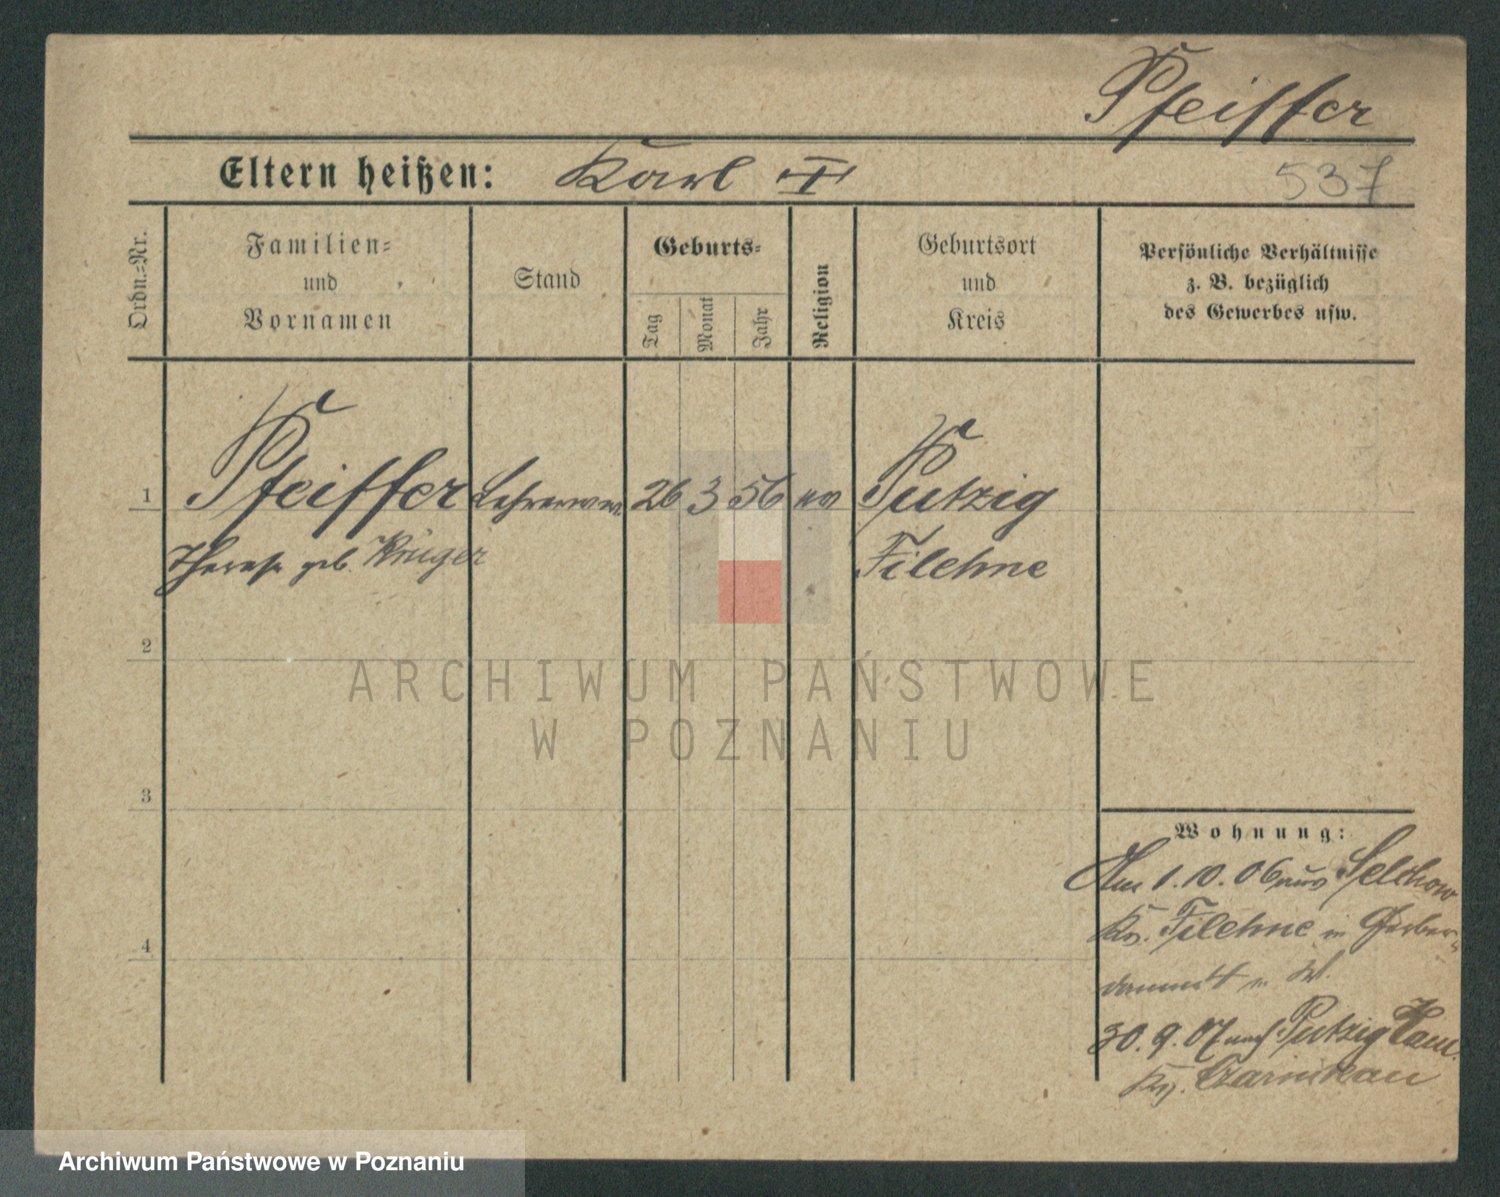 Pfeiffer
Eltern heißen: Karl I
537
Ordn.=Nr.
Familien=
und
Vornamen
Stand
Geburts=
Tag
Monat
Jahr
Religion
Geburtsort
und
Kreis
Persönliche Verhältnisse
z. B. bezüglich
des Gewerbes usw.
1 Pfeiffer Lehrerww. 26 3 56 ev Putzig
Therese geb. Krüger Filehne
2
3
4
Wohnung:
Am 1.10.06 aus Selchow
Kr. Filehne in Gerber=
dammt
30.9.07 nach Putzig Hau.
Kr. Czarnikau
ARCHIWUM PAŃSTWOWE
W POZNANIU
Archiwum Państwowe w Poznaniu